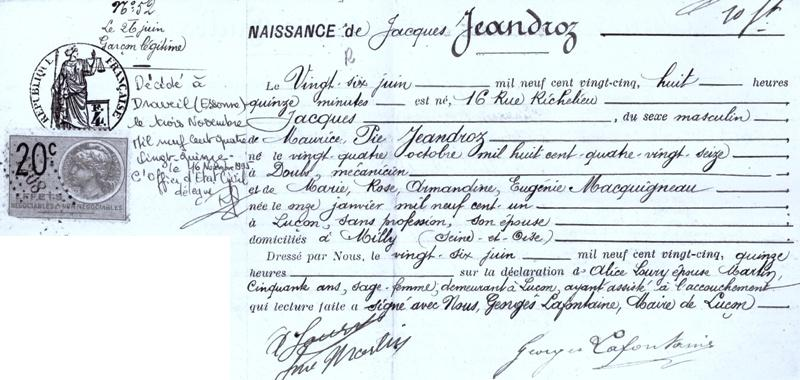 N° 52
Le 26 juin
Garçon légitime
RÉPUBLIQUE FRANÇAISE
20c
EFFETS
NÉGOCIABLES OU NON NÉGOCIABLES
Décédé à
Draveil (Essonne)
le trois Novembre
Mil neuf cent quatre
Vingt-quinze
le Novembre 1995
L'Officier d'Etat Civil
délégué
NAISSANCE de Jacques Jeandroz
Le Vingt six juin mil neuf cent vingt-cinq, huit heures
quinze minutes est né, 16 Rue Richelieu
Jacques, du sexe masculin
de Maurice, Pie Jeandroz
né le vingt quatre octobre mil huit cent-quatre-vingt-seize
à Doubs, mécanicien
et de Marie, Rose, Armandine, Eugénie Macquigneau
née le onze janvier mil neuf cent un
à Luçon, sans profession, son épouse
domiciliés à Milly (Seine-et-Oise)
Dressé par Nous, le vingt-six juin mil neuf cent vingt-cinq, quinze
heures sur la déclaration d'Alice Loury épouse Martin,
Cinquante ans, sage-femme, demeurant à Luçon, ayant assisté à l'accouchement
qui lecture faite a signé avec Nous, Georges Lafontaine, Maire de Luçon
A Loury
Martin
Georges Lafontaine